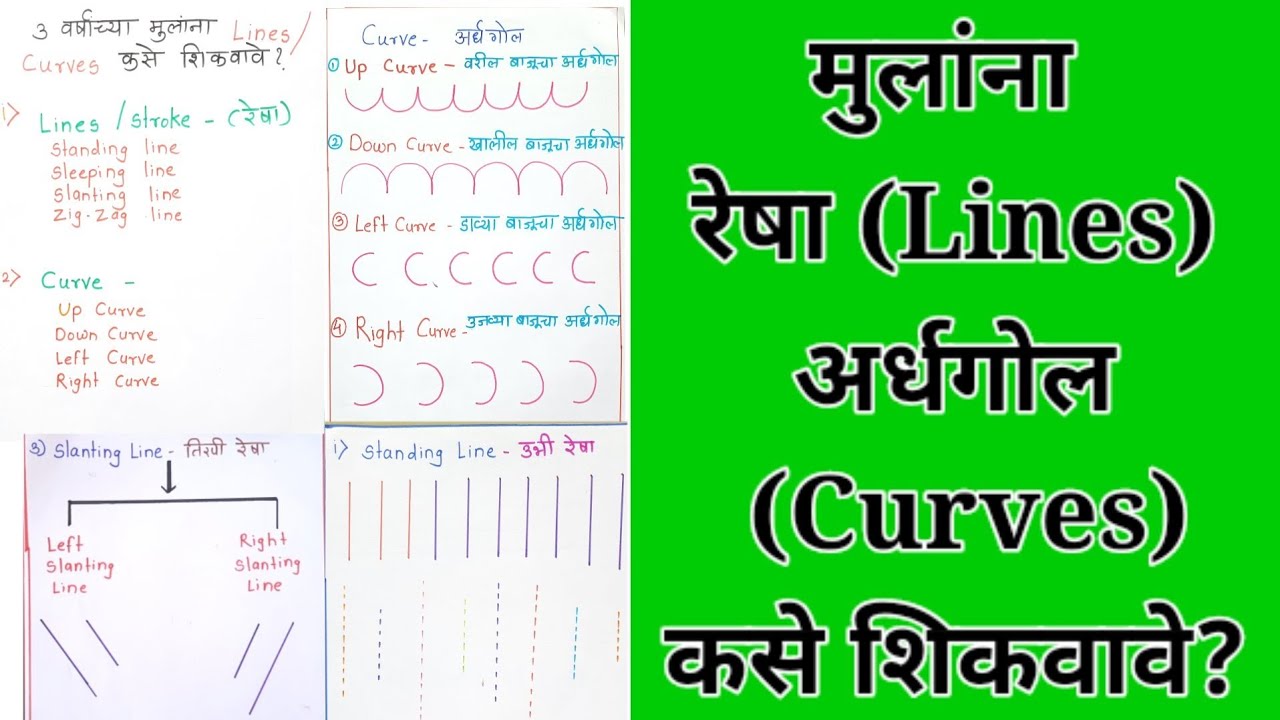 ३ वर्षाच्या मुलांना Lines/
Curves कसे शिकवावे?
1) Lines / stroke - (रेषा)
Standing line
Sleeping line
Slanting line
Zig-Zag line
2) Curve -
Up Curve
Down Curve
Left Curve
Right Curve
Curve - अर्धगोल
① Up Curve - वरील बाजूचा अर्धगोल
② Down Curve - खालील बाजूचा अर्धगोल
③ Left Curve - डाव्या बाजूचा अर्धगोल
④ Right Curve - उजव्या बाजूचा अर्धगोल
३) Slanting Line - तिरपी रेषा
Left
Slanting
Line
Right
Slanting
Line
1) Standing Line - उभी रेषा
मुलांना
रेषा (Lines)
अर्धगोल
(Curves)
कसे शिकवावे?